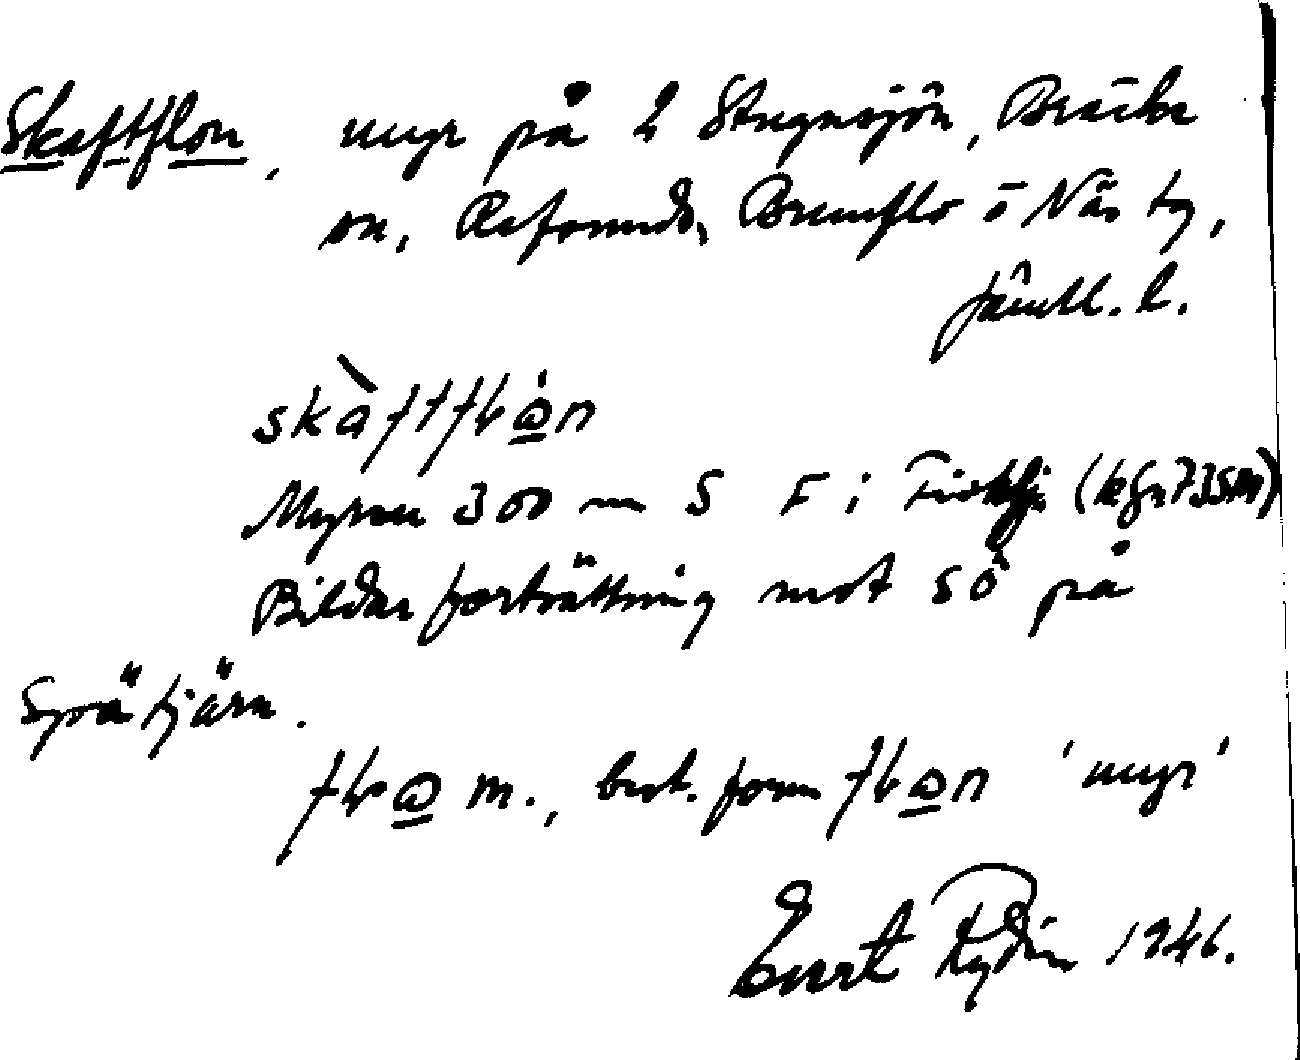 Skaftflon, myr på 2 Stugusjön, Bräcke
sn, Refsunds, Brunflo o Näs tg,
Jämtl. l.
skàftfɫòn
Myren 300 m S F i (kfr 735M)
Bildar fortsättning mot SÖ på
Spåtjärn.
m., best. form 'myr'
Evert Rydin 1946.